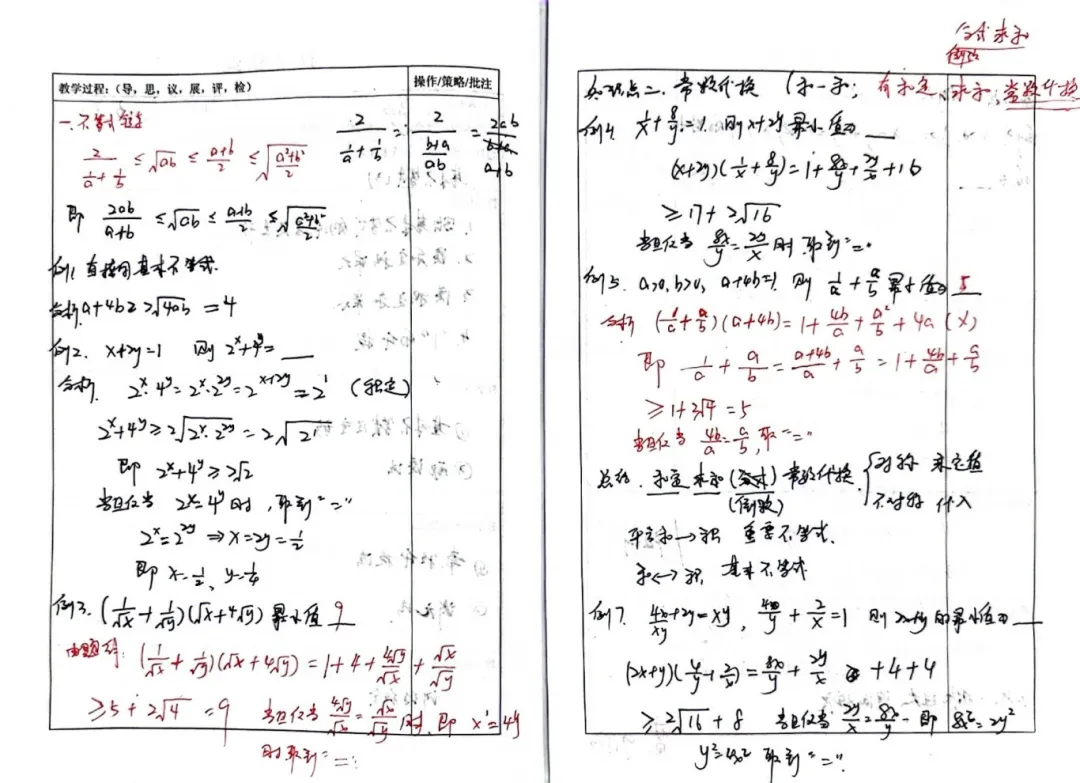 教学过程:(导,思,议,展,评,检) 操作/策略/批注
一.不等式链
2/(1/a+1/b) ≤ √ab ≤ (a+b)/2 ≤ √((a²+b²)/2)
2/(1/a+1/b) = 2/((b+a)/ab) = 2ab/(a+b)
即 2ab/(a+b) ≤ √ab ≤ (a+b)/2 ≤ √((a²+b²)/2)
例1 直接用基本不等式.
分析 a+4b≥2√4ab =4
例2. x+2y=1 则 2ˣ+4ʸ=____
分析. 2ˣ·4ʸ=2ˣ·2²ʸ=2ˣ⁺²ʸ=2¹ (积定)
2ˣ+4ʸ≥2√(2ˣ·2²ʸ)=2√2
即 2ˣ+4ʸ≥2√2
当且仅当 2ˣ=4ʸ时,取到"="
2ˣ=2²ʸ ⇒x=2y=1/2
即 x=1/2, y=1/4
例3. (1/√x+1/√y)(√x+4√y)最小值 9
由题得: (1/√x+1/√y)(√x+4√y)=1+4+4√y/√x+√x/√y
≥5+2√4 =9 当且仅当 4√y/√x=√x/√y 时,即 x=4y
时取到"="
分式求和
倒数
知识点二.常数代换 (和一和; 有和定,求和,常数代换
例4. 1/x+8/y=1. 则 x+2y最小值为____
(x+2y)(1/x+8/y)=1+8x/y+2y/x+16
≥17+2√16
当且仅当 8x/y=2y/x时取到"="
例5. a>0,b>0, a+4b=1 则 1/a+a/b最小值为 5
分析 (1/a+a/b)(a+4b)=1+4b/a+a²/b+4a (×)
即 1/a+a/b=(a+4b)/a+a/b=1+4b/a+a/b
≥1+2√4=5
当且仅当 4b/a=a/b,取"="
总结. 和定 求和(分式)常数代换 {对称 求定值
(倒数) 不对称 代入
平方和→积 重要不等式.
和↔积, 基本不等式
例7. 4x+2y=xy, 4/y+2/x=1 则2x+y的最小值为____
xy
(2x+y)(4/y+2/x)=8x/y+2y/x+4+4
≥2√16+8 当且仅当2y/x=8x/y 即 8x²=2y²
y²=4x² 取到"="